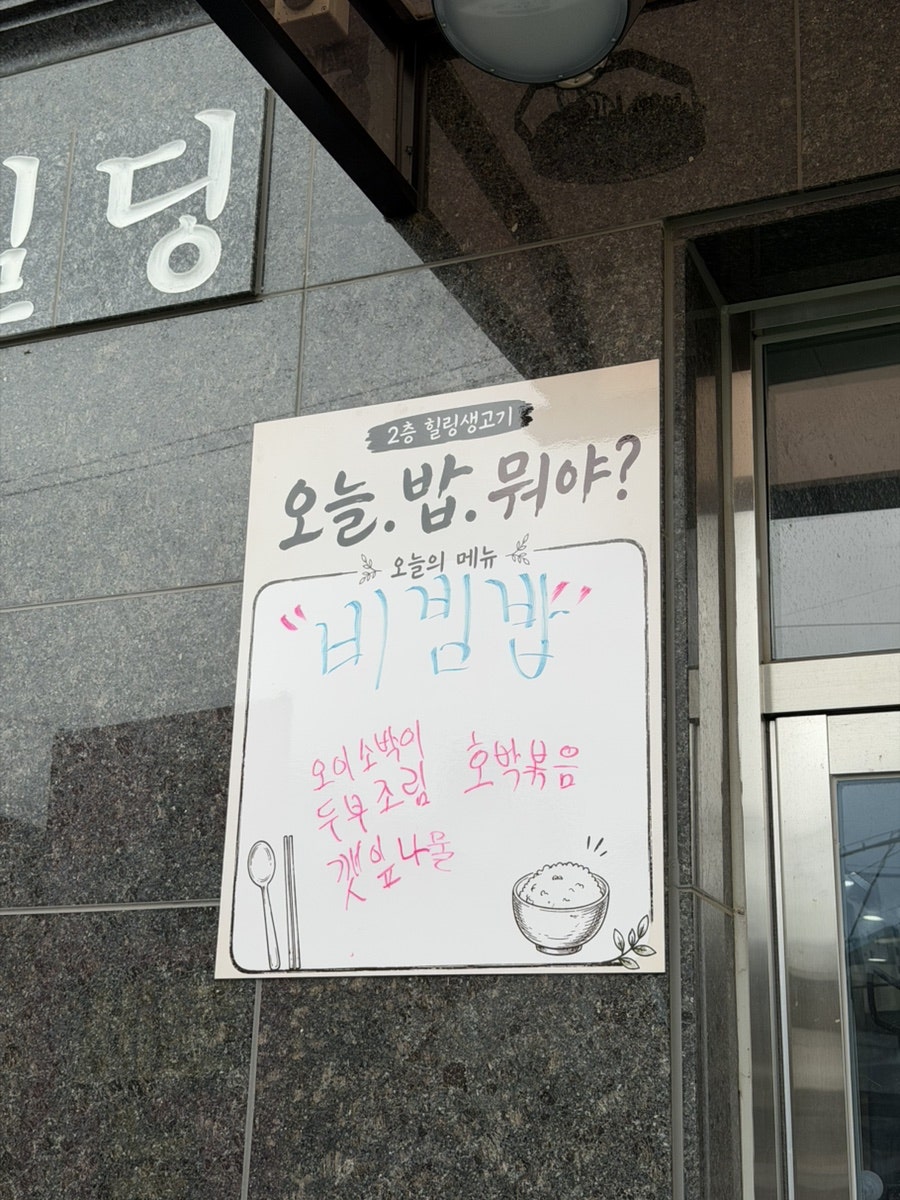 빌딩
2층 힐링생고기
오늘.밥.뭐야?
오늘의 메뉴
"비빔밥"
오이소박이 호박볶음
두부조림
깻잎나물